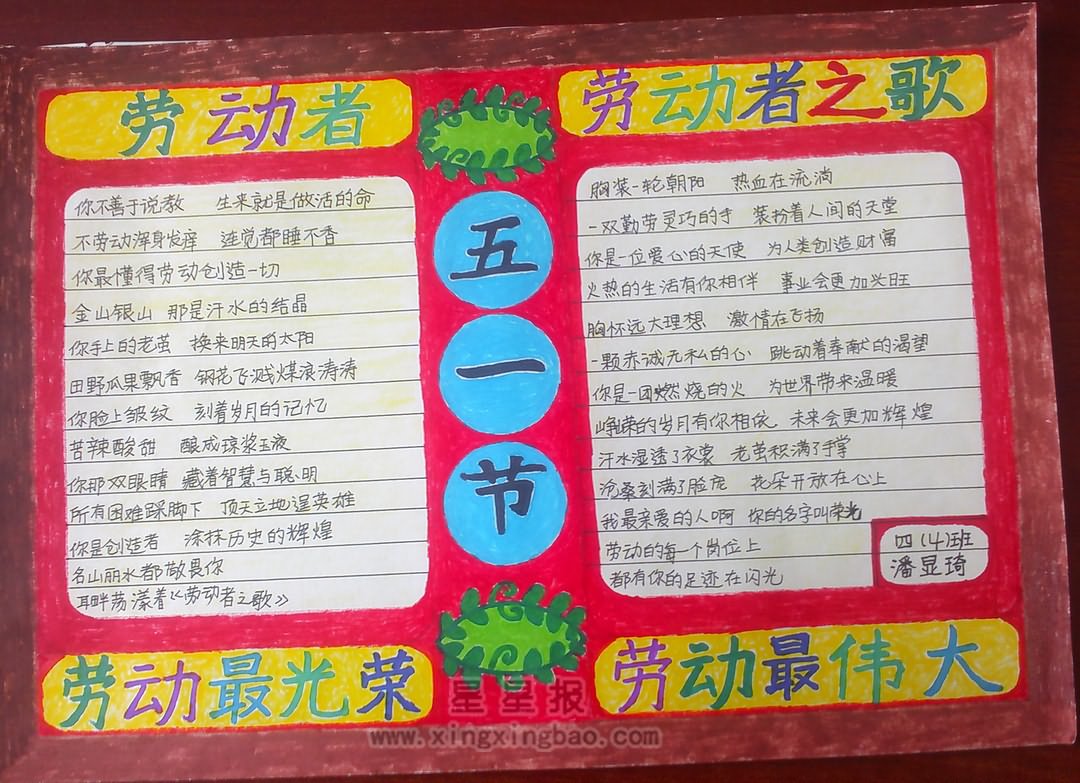 劳动者
你不善于说教 生来就是做活的命
不劳动浑身发痒 连觉都睡不香
你最懂得劳动创造一切
金山银山 那是汗水的结晶
你手上的老茧 换来明天的太阳
田野瓜果飘香 钢花飞溅煤浪涛涛
你脸上皱纹 刻着岁月的记忆
苦辣酸甜 酿成琼浆玉液
你那双眼睛 藏着智慧与聪明
所有困难踩脚下 顶天立地逞英雄
你是创造者 涂抹历史的辉煌
名山丽水都敬畏你
耳畔荡漾着《劳动者之歌》
劳动最光荣
五
一
节
劳动者之歌
胸装一轮朝阳 热血在流淌
一双勤劳灵巧的手 装扮着人间的天堂
你是一位爱心的天使 为人类创造财富
火热的生活有你相伴 事业会更加兴旺
胸怀远大理想 激情在飞扬
一颗赤诚无私的心 跳动着奉献的渴望
你是一团燃烧的火 为世界带来温暖
峥嵘的岁月有你相依 未来会更加辉煌
汗水湿透了衣裳 老茧积满了手掌
沧桑刻满了脸庞 花朵开放在心上
我最亲爱的人啊 你的名字叫荣光
劳动的每一个岗位上
都有你的足迹在闪光
四(4)班
潘显琦
劳动最伟大
星星报
www.xingxingbao.com